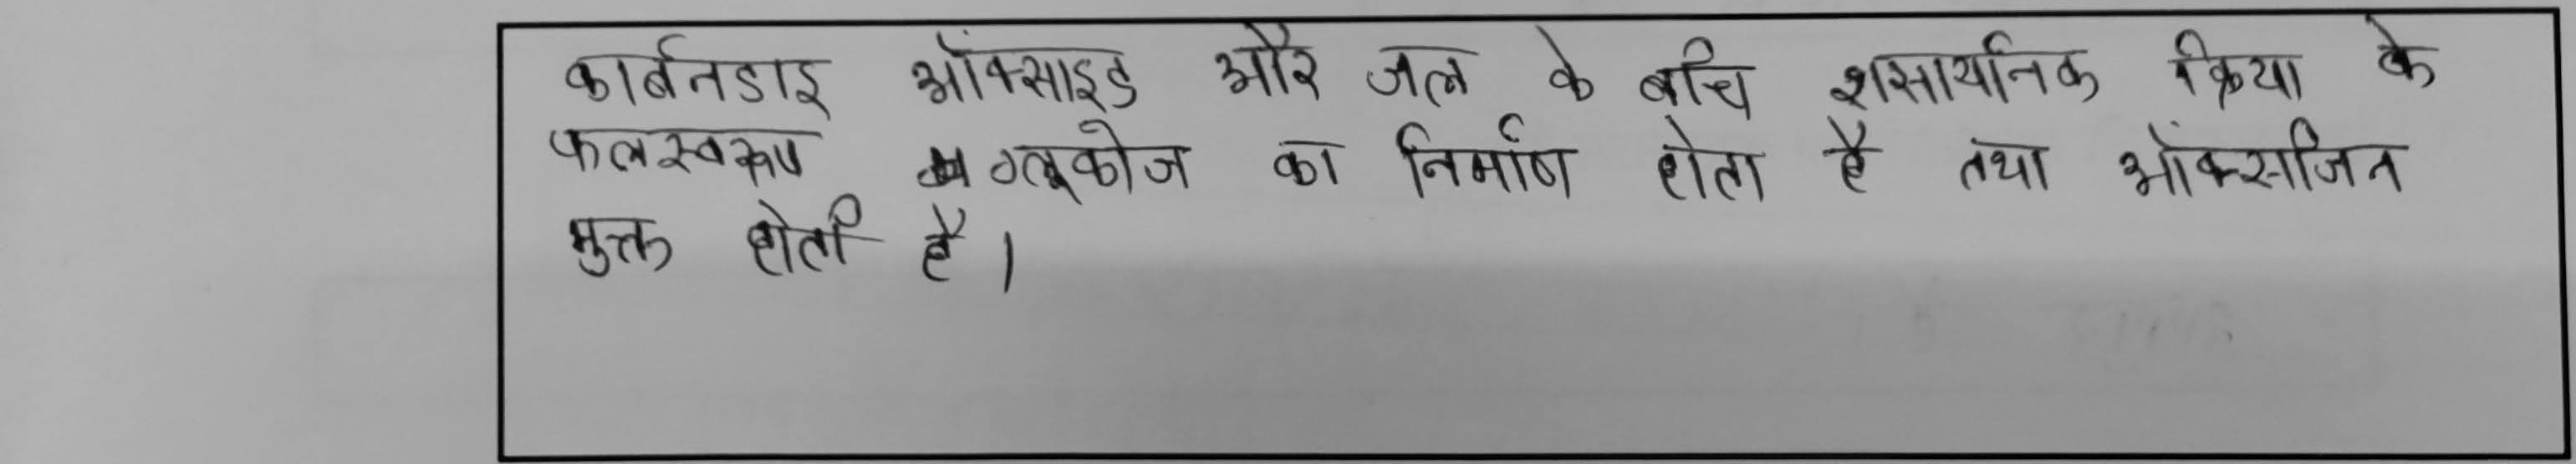 कार्बनडाइ ऑक्साइड और जल के बीच रासायनिक क्रिया के
फलस्वरूप ग्लूकोज का निर्माण होता है तथा ऑक्सीजन
मुक्त होती है।